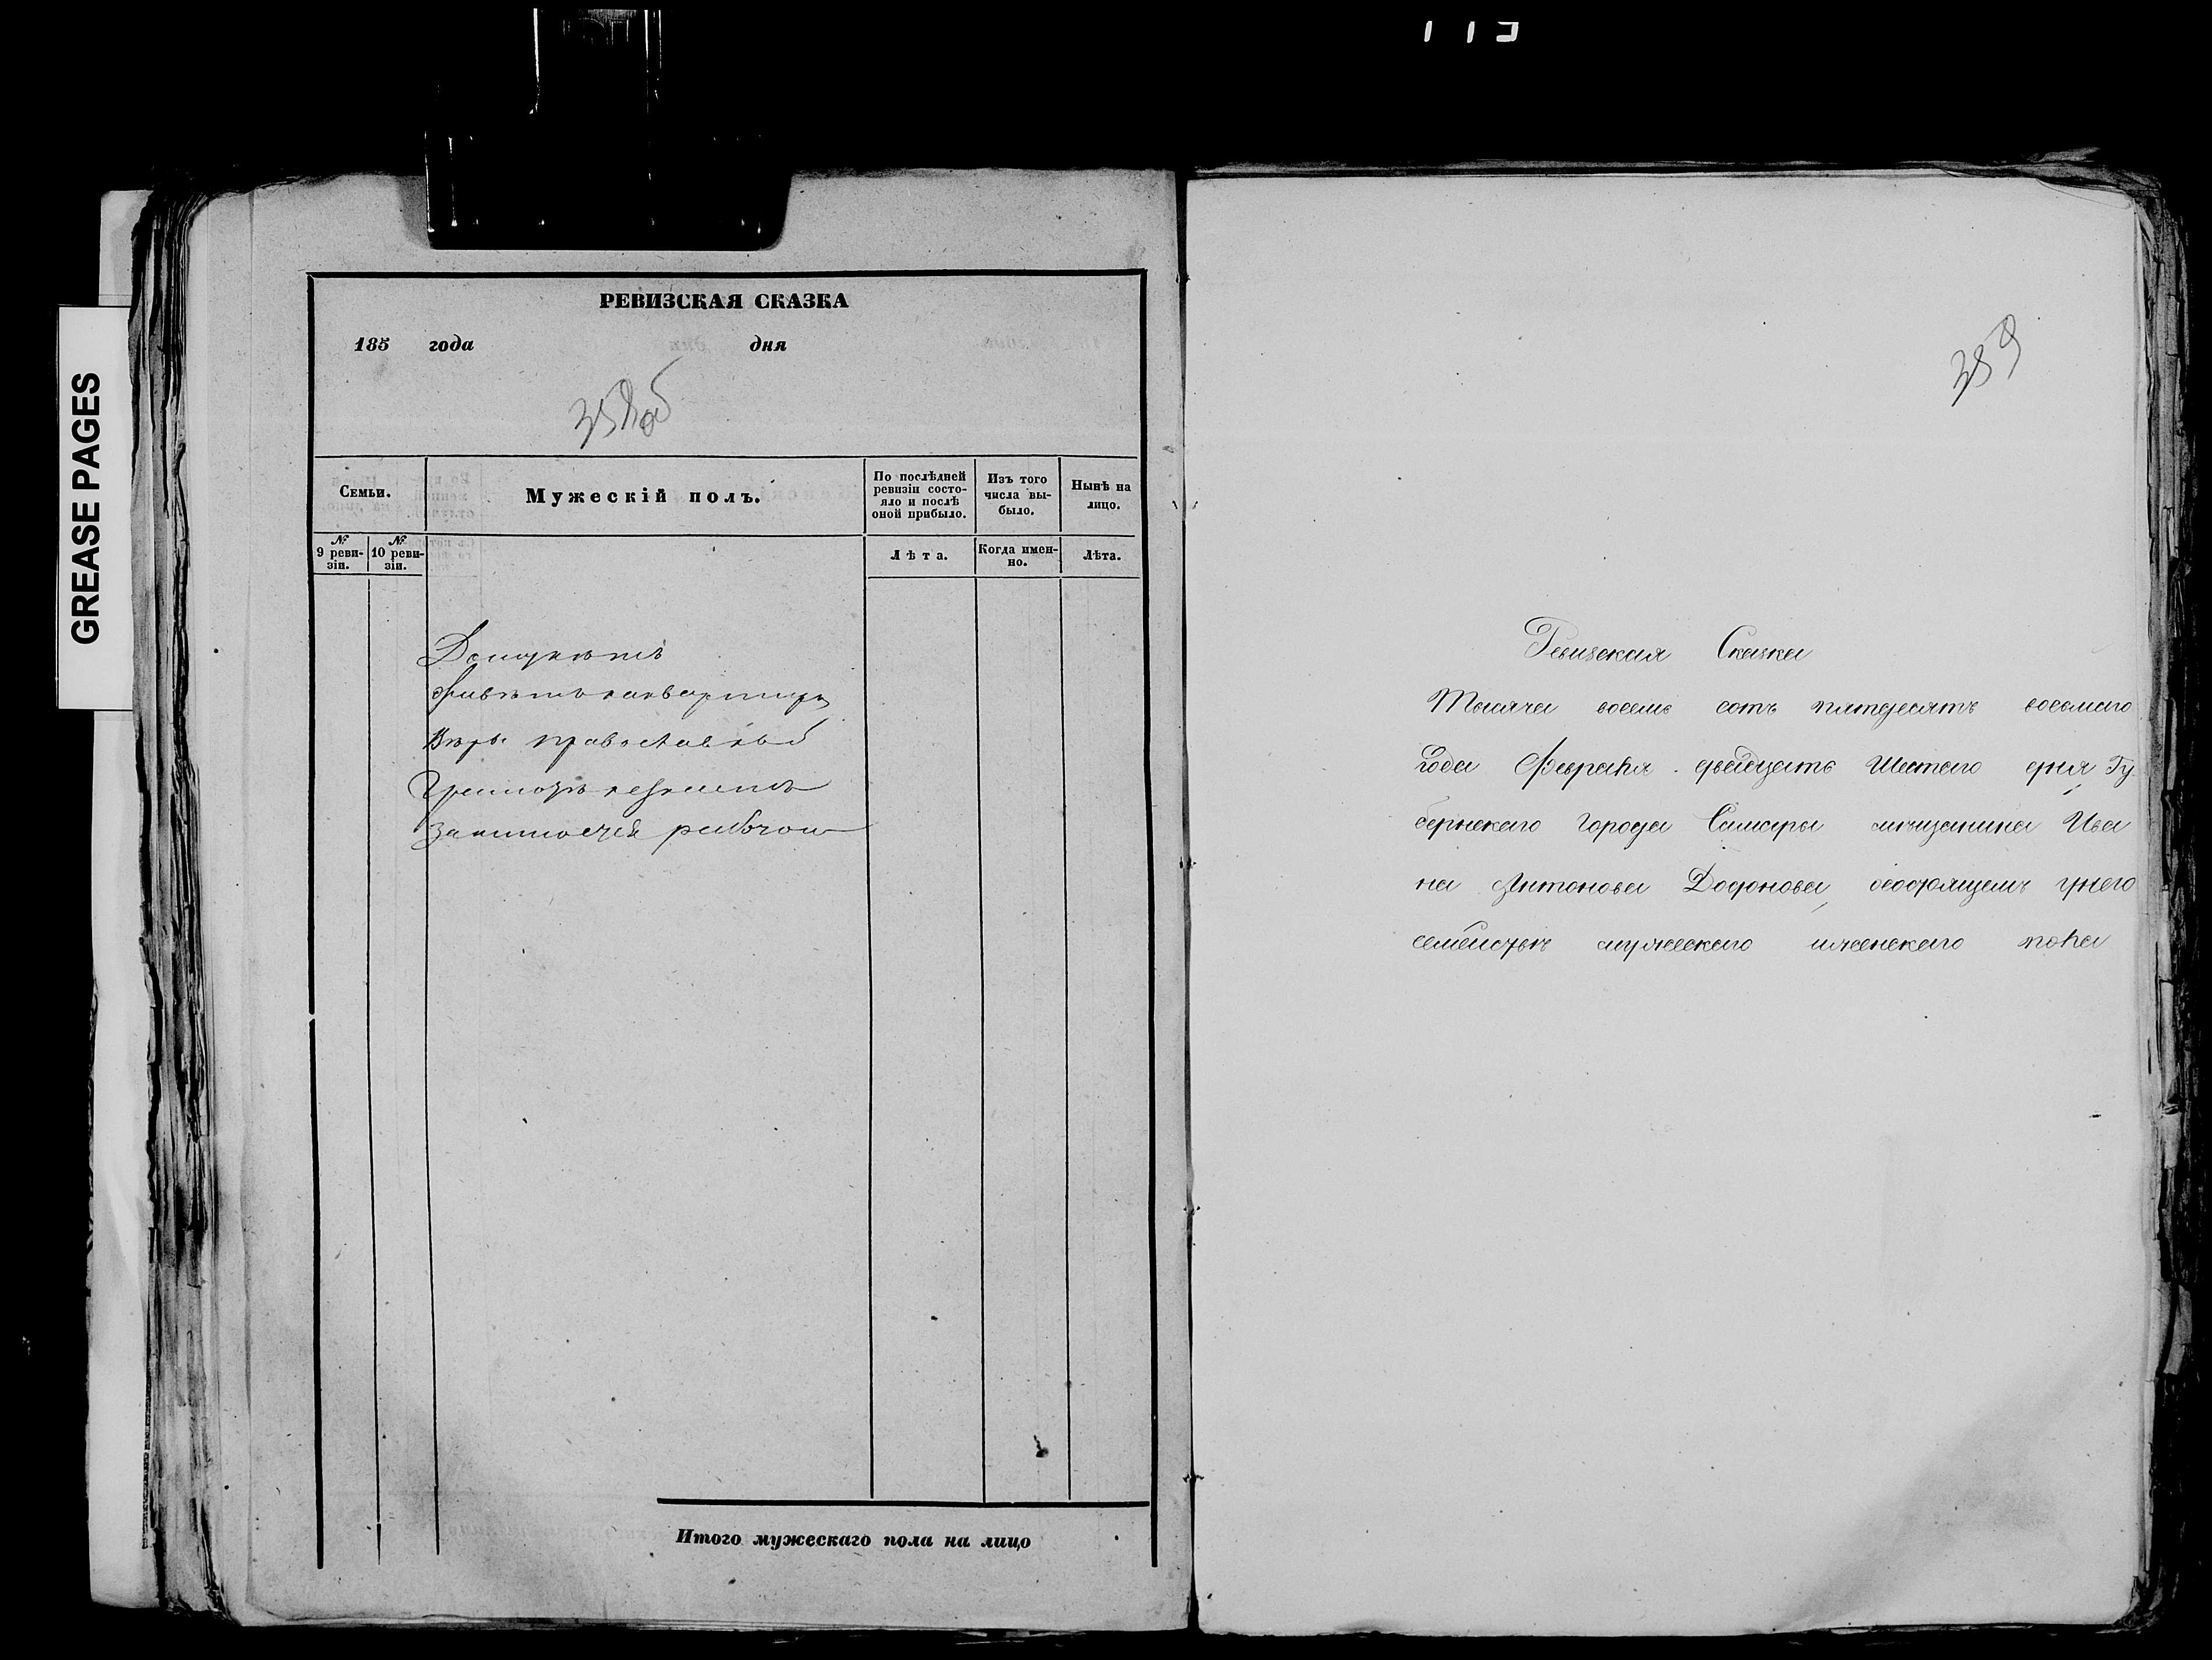 113
GREASE PAGES
РЕВИЗСКАЯ СКАЗКА
185 года дня
358об
Семьи.
Мужескій полъ.
По послѣдней ревизіи состо-
яло и послѣ
оной прибыло.
Изъ того
числа вы-
было.
Нынѣ на
лицо.
№ 9 реви-
зіи.
№ 10 реви-
зіи.
Лѣта.
Когда имен-
но.
Лѣта.
Дому нетъ
Живетъ на квартире
Веры православной
Грамоте незнаетъ
Занимается работои
Итого мужескаго пола на лицо
359
Ревизская Сказка
Тысяча восемь сотъ пятдесятъ восьмаго
Года Февраля двадцать Шестаго дня Гу-
бернскаго Города Самары мещанина Ива
на Антонова Додонова, осостоящемъ унего
семействе мужескаго иженскаго пола